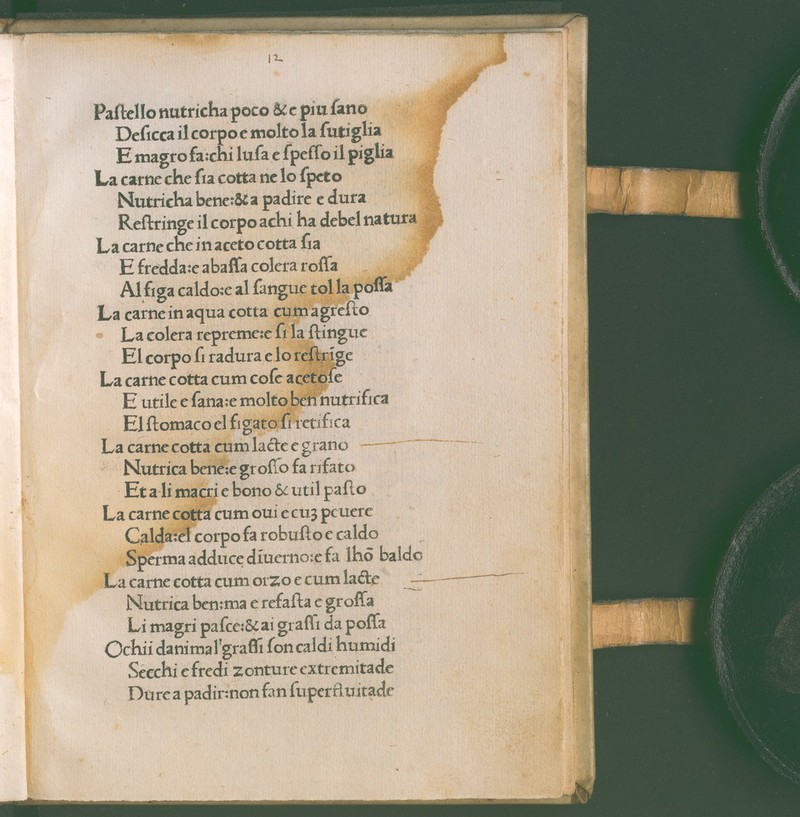 12
Paſtello nutricha poco & e piu ſano
Deſicca il corpo e molto la ſutiglia
E magro fa:chi luſa e ſpeſſo il piglia
La carne che ſia cotta ne lo ſpeto
Nutricha bene:& a padire e dura
Reſtringe il corpo achi ha debel natura
La carne che in aceto cotta ſia
E fredda:e abaſſa colera roſſa
Al figa caldo:e al ſangue tol la poſſa
La carne in aqua cotta cum agreſto
La colera repreme:e ſi la ſtingue
El corpo ſi radura e lo reſtrīge
La carne cotta cum coſe acetoſe
E utile e ſana:e molto ben nutrifica
El ſtomaco el figato ſi retifica
La carne cotta cum lacte e grano
Nutrica bene:e groſſo fa rifato
Et a li macri e bono & util paſto
La carne cotta cum oui e cuʒ peuere
Calda:el corpo fa robuſto e caldo
Sperma adduce dīuerno:e fa lhō baldo
La carne cotta cum orzo e cum lacte
Nutrica ben:ma e refaſta e groſſa
Li magri paſce:& ai graſſi da poſſa
Ochii danimal'graſſi ſon caldi humidi
Secchi e fredi zonture extremitade
Dure a padir:non fan ſuperfluitade